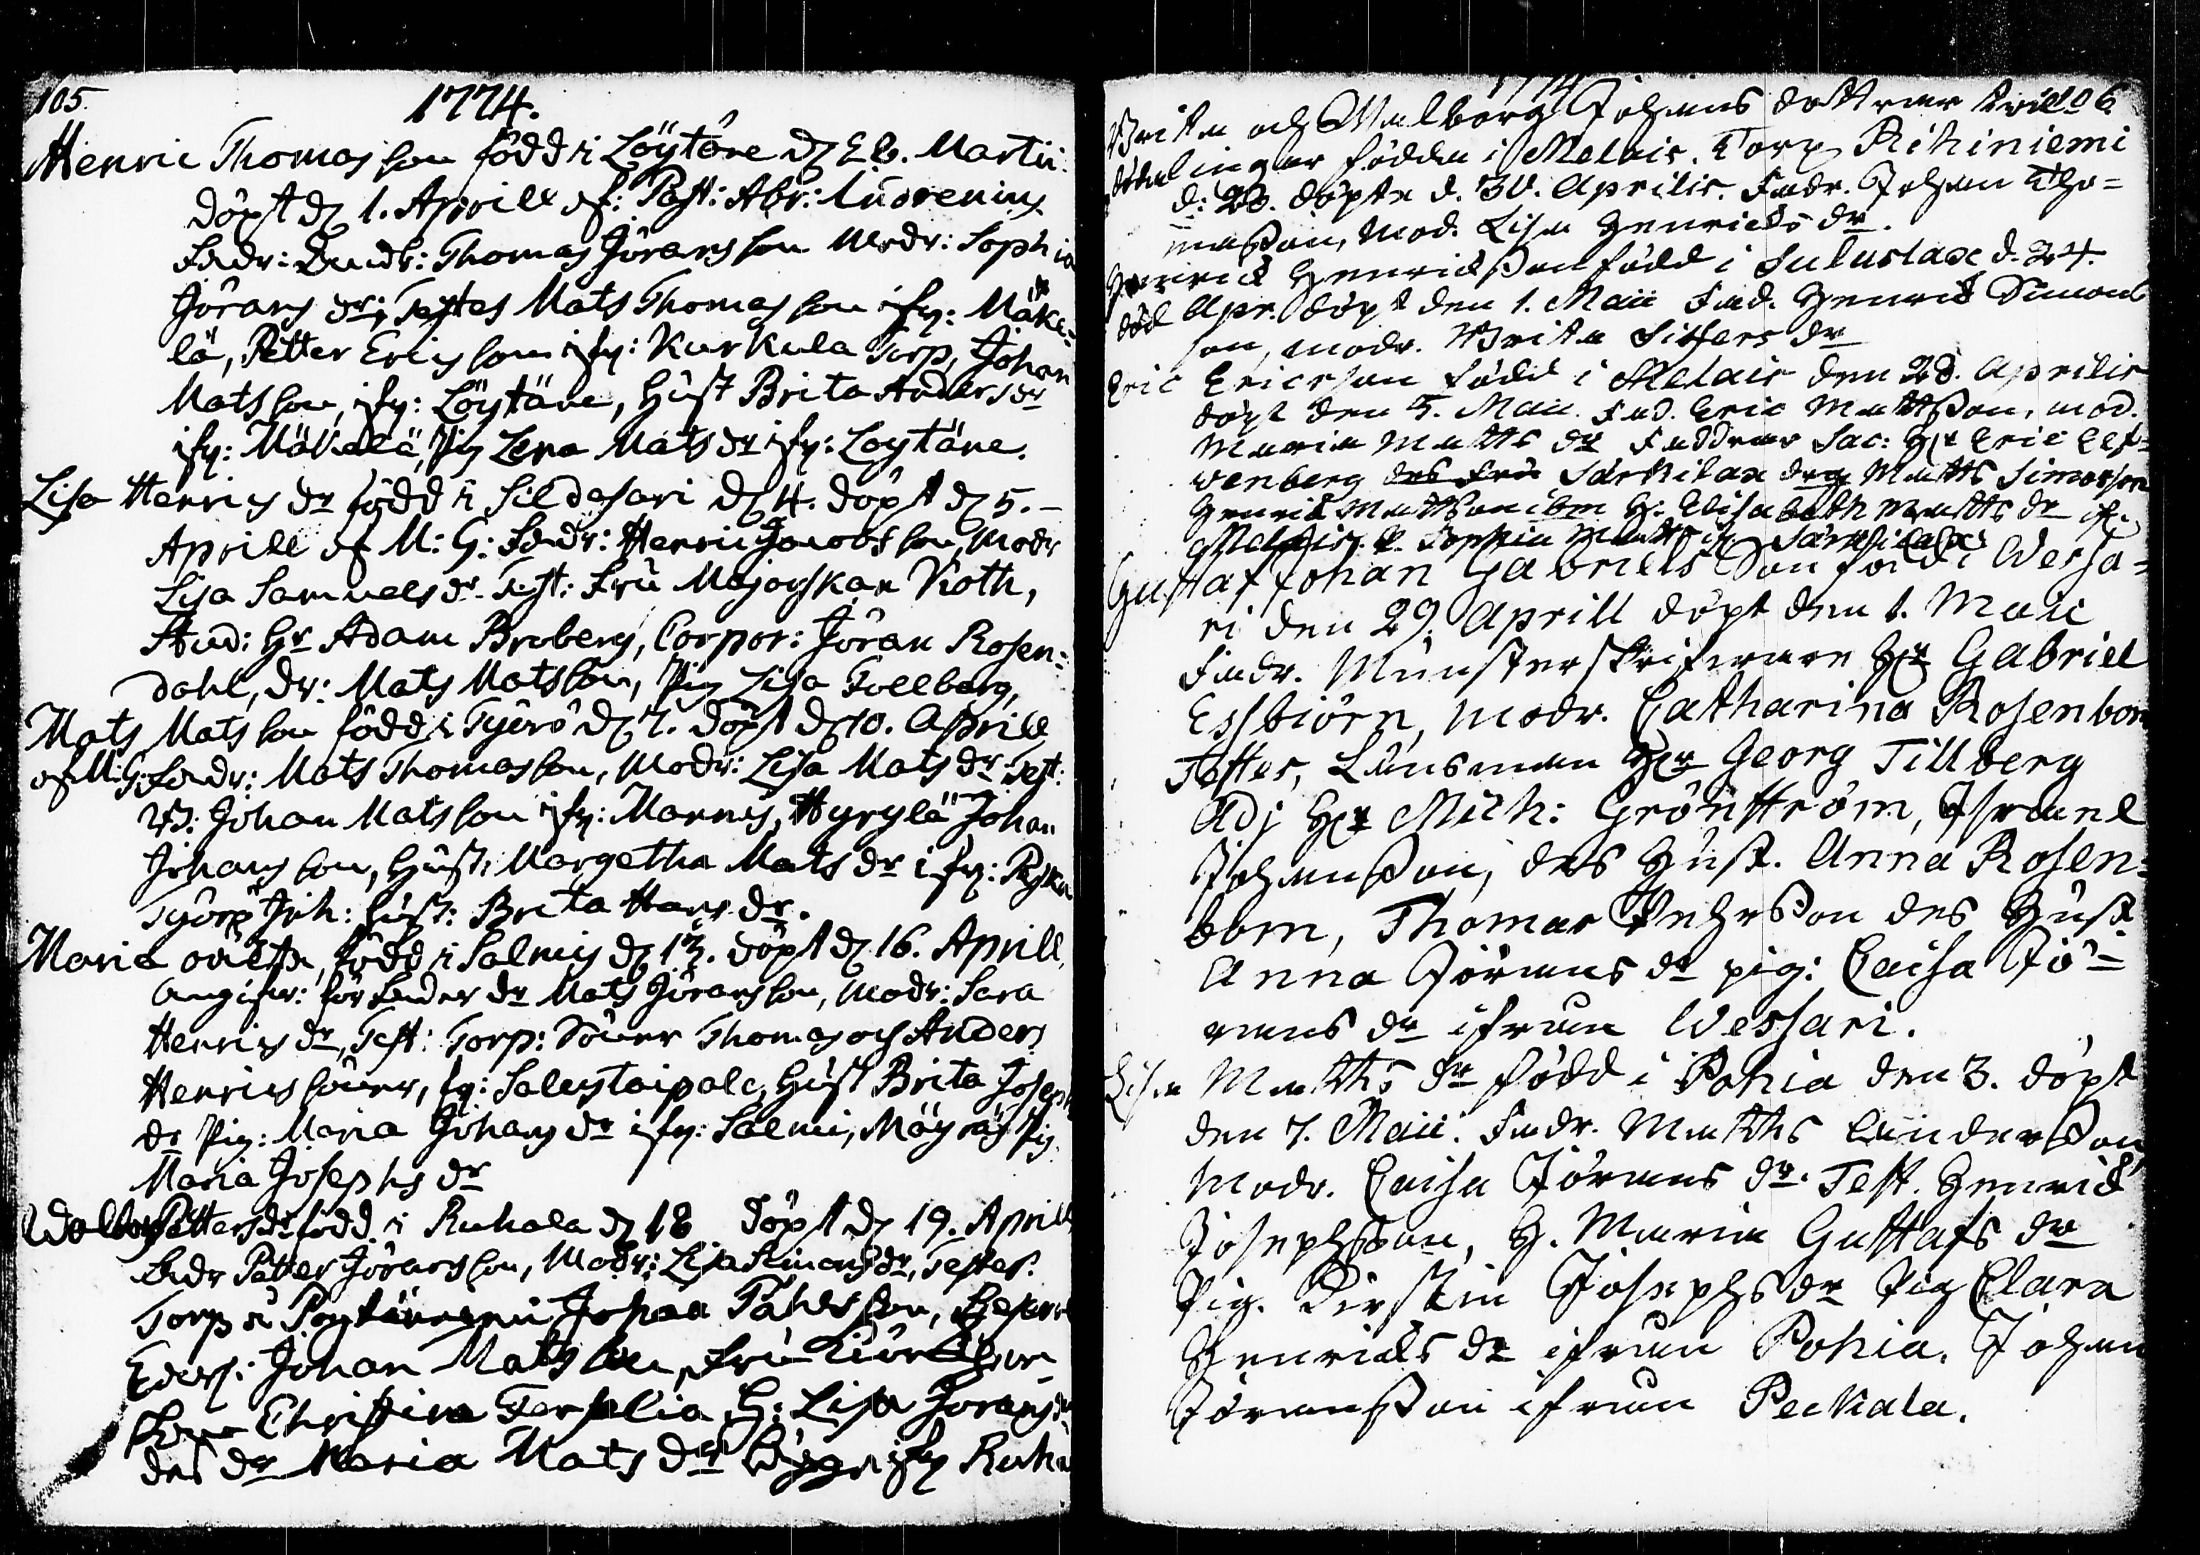 105.
1774.
Henric Thomas son född i Löytäne d. Martii
döpt d. 1. Aprill af: Past: Abr:
Fadr: Thomas Jörans son Modr: Sophia
Jörans dr; Testes Mats Thomas son ifr: Mäke-
lä, Petter Erics son ifr: Kurkula Torp, Johan
Mats son, ifr: Löytäne, Hust Brita Anders dr
ifr: Mäkelä, Pig Lena Mats dr ifr: Loytäne.
Lisa Henrics dr född i Sildasari d. 4. döpt d. 5.
Aprill af M: G: Fadr: Henric Jacobs son, Modr
Lisa Samuels dr. Test: Fru Majorskan Roth,
Stud: Hr Adam Broberg, Corpor: Jöran Rosen-
dahl, dr: Mats Mats son, Pig Lisa Follberg,
Mats Mats son född i Työrö d. 7. döpt d. 10. Aprill
af M: G: Fadr: Mats Thomas son, Modr: Lisa Mats dr Test:
B: Johan Mats son ifr: Hyrylä Johan
Johans son, Hust: Margetha Mats dr ifr:
Joh: Hust: Brita Hans dr.
Maria oäckta, född i Salmis d. 13. döpt d. 16. Aprill,
Angifr: för Fader dr Mats Jörans son, Modr: Sara
Henrics dr, Test: Torp: Söner Thomas och Anders
Henrics söner, fr: Salustaipale, Hust Brita Joseph
dr Pig: Maria Johans dr ifr: Salmi, Mäyräs Pig.
Maria Josephs dr
Walborg Petters dr född i Ruhala d. 18 döpt d. 19. Aprill
Fadr Petter Jörans son, Modr: Lisa Simons dr, Testes.
Torp Johan Påhls son,
Johan Mats son, Fru
Christina G: Lisa Jörans dr
des dr Maria Mats dr ifr Ruha
1774
106
Brita och Walborg Johans döttrar
tvillingar födda i Melais. Torp Riihiniemi
d: 28. döpte d. 30. Aprilis. Fadr. Johan Tho-
masson, Mod. Lisa Henricks dr.
Henrick Henricksson född i Sulustax d. 24.
död Apr. döpt den 1. Maii Fad. Henrick Simons
son, modr. Brita Siffers dr
Eric Ericsson född i Melais den 28. Aprilis
döpt den 5. Maii. Fad. Eric Mattsson, mod.
Maria Matts dr Faddrar Sac: Hr Eric Lef-
wenberg des Fru Särkilax drg Matts Simonsson
Henrick Mattsson ibm H. Elisabeth Matts dr if.
Melais. P. Sophia Matts dr Särkilax
Gustaf Johan Gabriels Son född i Wessa-
ri den 29. Aprill döpt den 1. Maii
Fadr. Munsterskrifvare Hr Gabriel
Essbiörn, Modr. Catharina Rosenbom
Testes, Länsman Hr Georg Tillberg
Adj Hr Mich: Grönström, Israel
Johansson, des Hust. Anna Rosen-
bom, Thomas Pehrsson des Hust.
Anna Jörans dr pig: Caisa Jö-
rans dr ifrån Wessari.
Lisa Matths dr född i Pohia den 3. döpt
den 7. Maii. Fadr. Matths Andersson
Modr. Caisa Jörans dr. Test. Henrick
Josephsson, H. Maria Gustafs dr
Pig. Kirstin Josephs dr Pig Clara
Henricks dr ifrån Pohia. Johan
Jöransson ifrån Peckala.